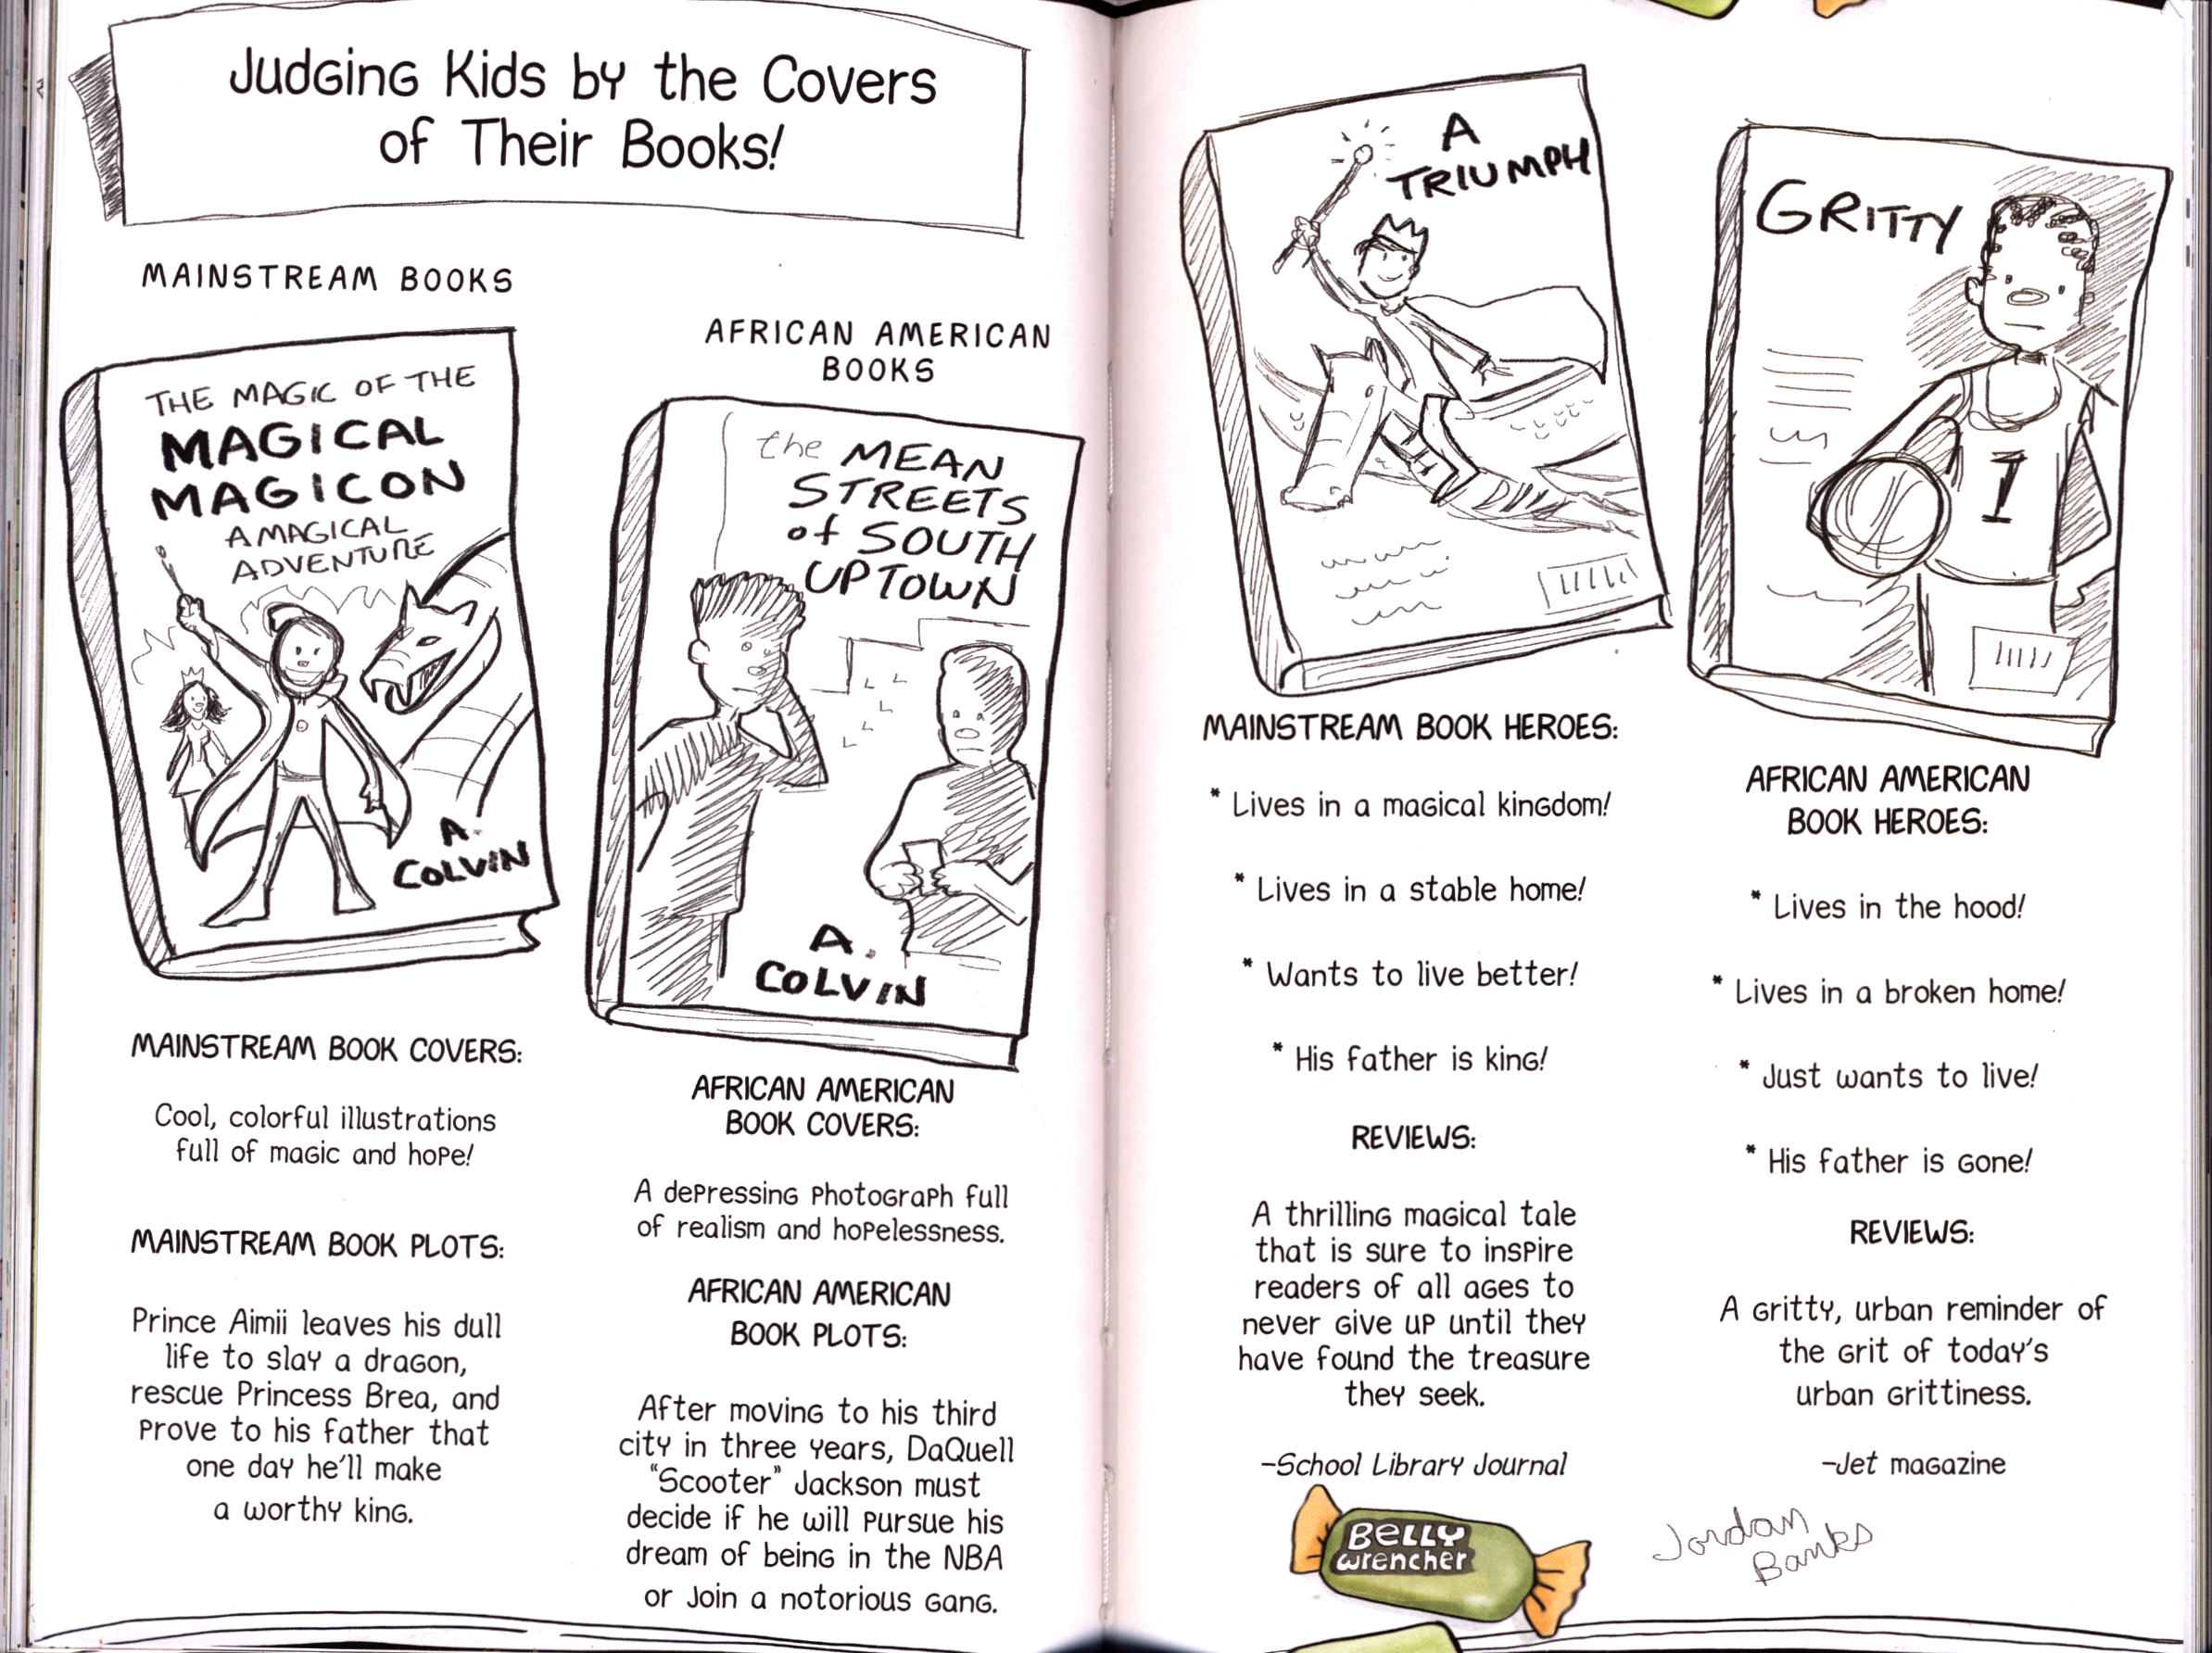 Judging Kids by the Covers
of Their Books!
MAINSTREAM BOOKS
THE MAGIC OF THE
MAGICAL
MAGICON
A MAGICAL
ADVENTURE
A.
COLVIN
MAINSTREAM BOOK COVERS:
Cool, colorful illustrations
full of magic and hope!
MAINSTREAM BOOK PLOTS:
Prince Aimii leaves his dull
life to slay a dragon,
rescue Princess Brea, and
prove to his father that
one day he'll make
a worthy king.
AFRICAN AMERICAN
BOOKS
the MEAN
STREETS
of SOUTH
UPTOWN
A.
COLVIN
AFRICAN AMERICAN
BOOK COVERS:
A depressing photograph full
of realism and hopelessness.
AFRICAN AMERICAN
BOOK PLOTS:
After moving to his third
city in three years, DaQuell
"Scooter" Jackson must
decide if he will pursue his
dream of being in the NBA
or join a notorious gang.
A
TRIUMPH
MAINSTREAM BOOK HEROES:
* Lives in a magical kingdom!
* Lives in a stable home!
* Wants to live better!
* His father is king!
REVIEWS:
A thrilling magical tale
that is sure to inspire
readers of all ages to
never give up until they
have found the treasure
they seek.
-School Library Journal
BELLY
wrencher
GRITTY
1
AFRICAN AMERICAN
BOOK HEROES:
* Lives in the hood!
* Lives in a broken home!
* Just wants to live!
* His father is gone!
REVIEWS:
A gritty, urban reminder of
the grit of today's
urban grittiness.
-Jet magazine
Jordan
Banks